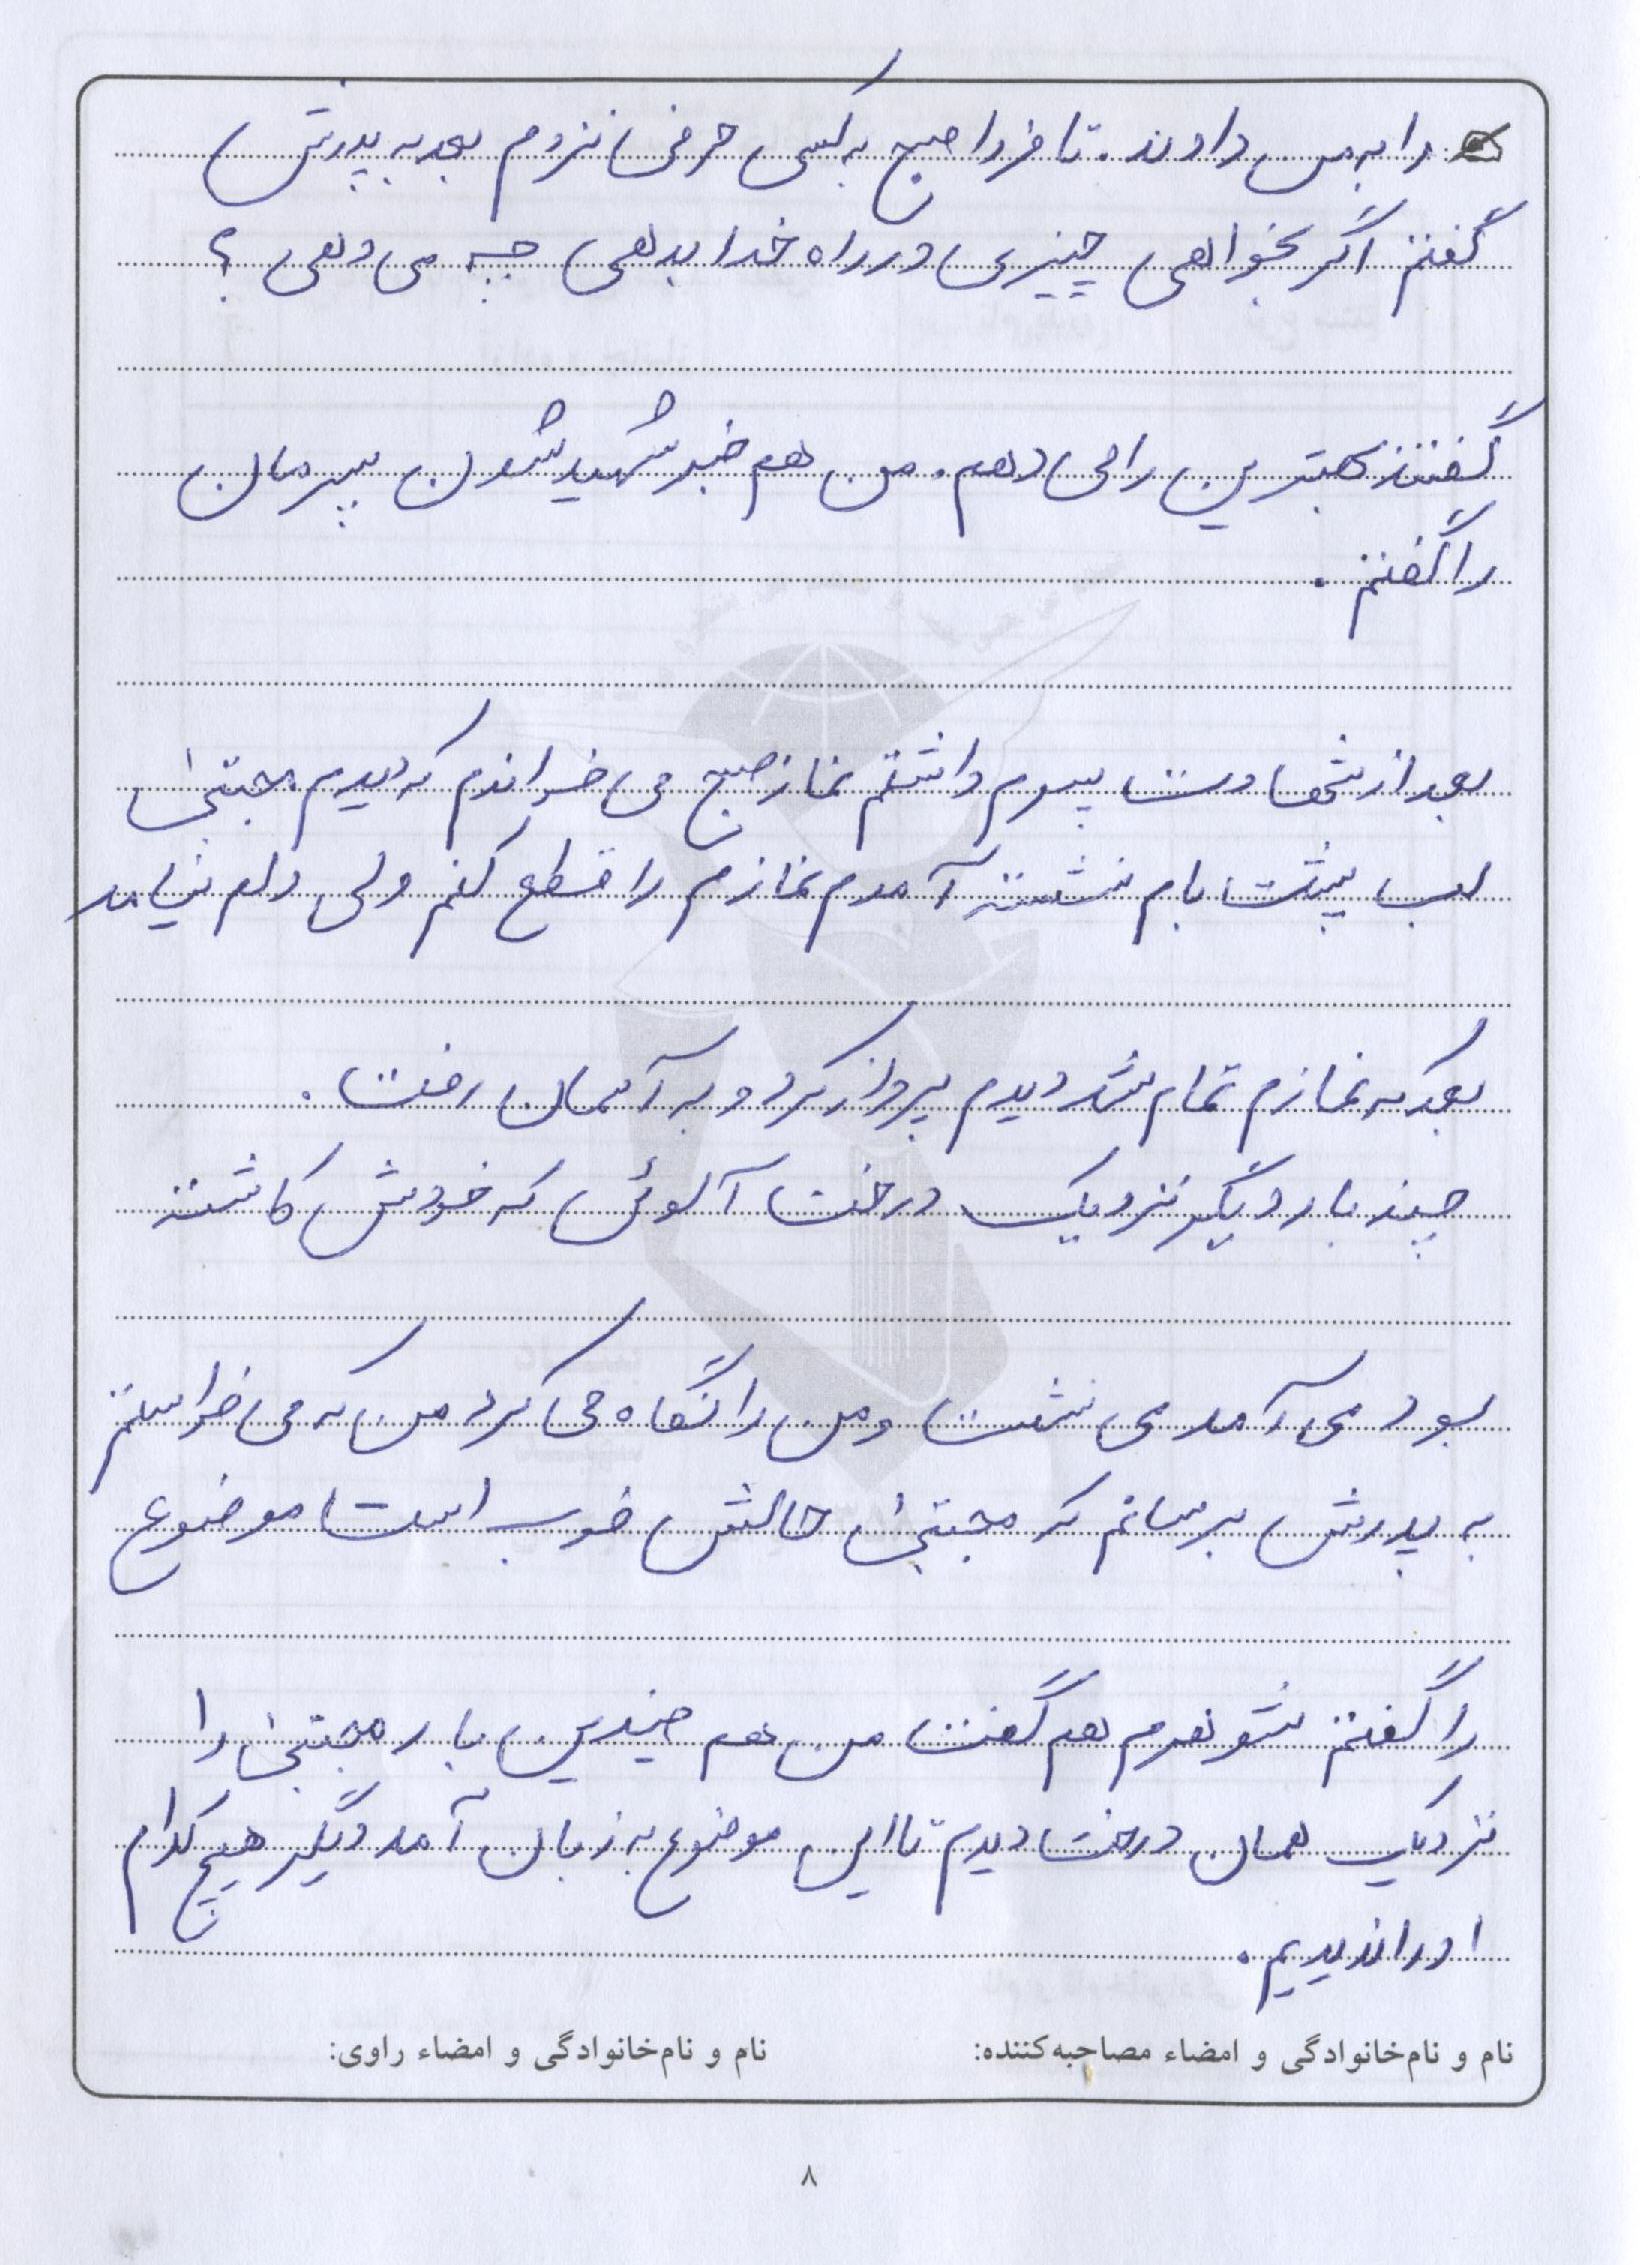 را به من دادند. تا فردا صبح به کسی حرفی نزدم بعد به پدرش
گفتم اگر بخواهی چیزی در راه خدا بدهی چه می دهی ؟
گفتند بهترین را می دهم. من هم خبر شهید شدن پسرمان
را گفتم .
بعد از شهادت پسرم داشتم نماز صبح می خواندم که دیدم مجتبی
لب پشت بام نشسته آمدم نمازم را قطع کنم ولی دلم نیامد
بعد که نمازم تمام شد دیدم پرواز کرد و به آسمان رفت .
چند بار دیگر نزدیک درخت آلوئی که خودش کاشته
بود می آمد می نشست و من را نگاه می کرد من که می خواستم
به پدرش برسانم که مجتبی حالش خوب است موضوع
را گفتم شوهرم هم گفت من هم چندین بار مجتبی را
نزدیک همان درخت دیدم تا این موضوع به زبان آمد دیگر هیچ کدام
او را ندیدیم .
نام و نام‌خانوادگی و امضاء مصاحبه‌کننده: نام و نام‌خانوادگی و امضاء راوی:
۸